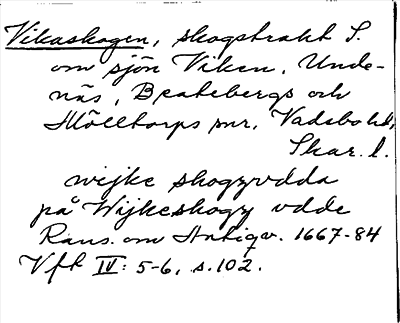 Vikaskogen, skogstrakt S.
om sjön Viken, Unde-
näs, Bratebergs och
Mölltorps snr, Vadsbo hd,
Skar. l.
wijke skogzvdda
på Wijkeskogz vdde
Rans. om Antiqv. 1667-84
Vft IV: 5-6, s. 102.